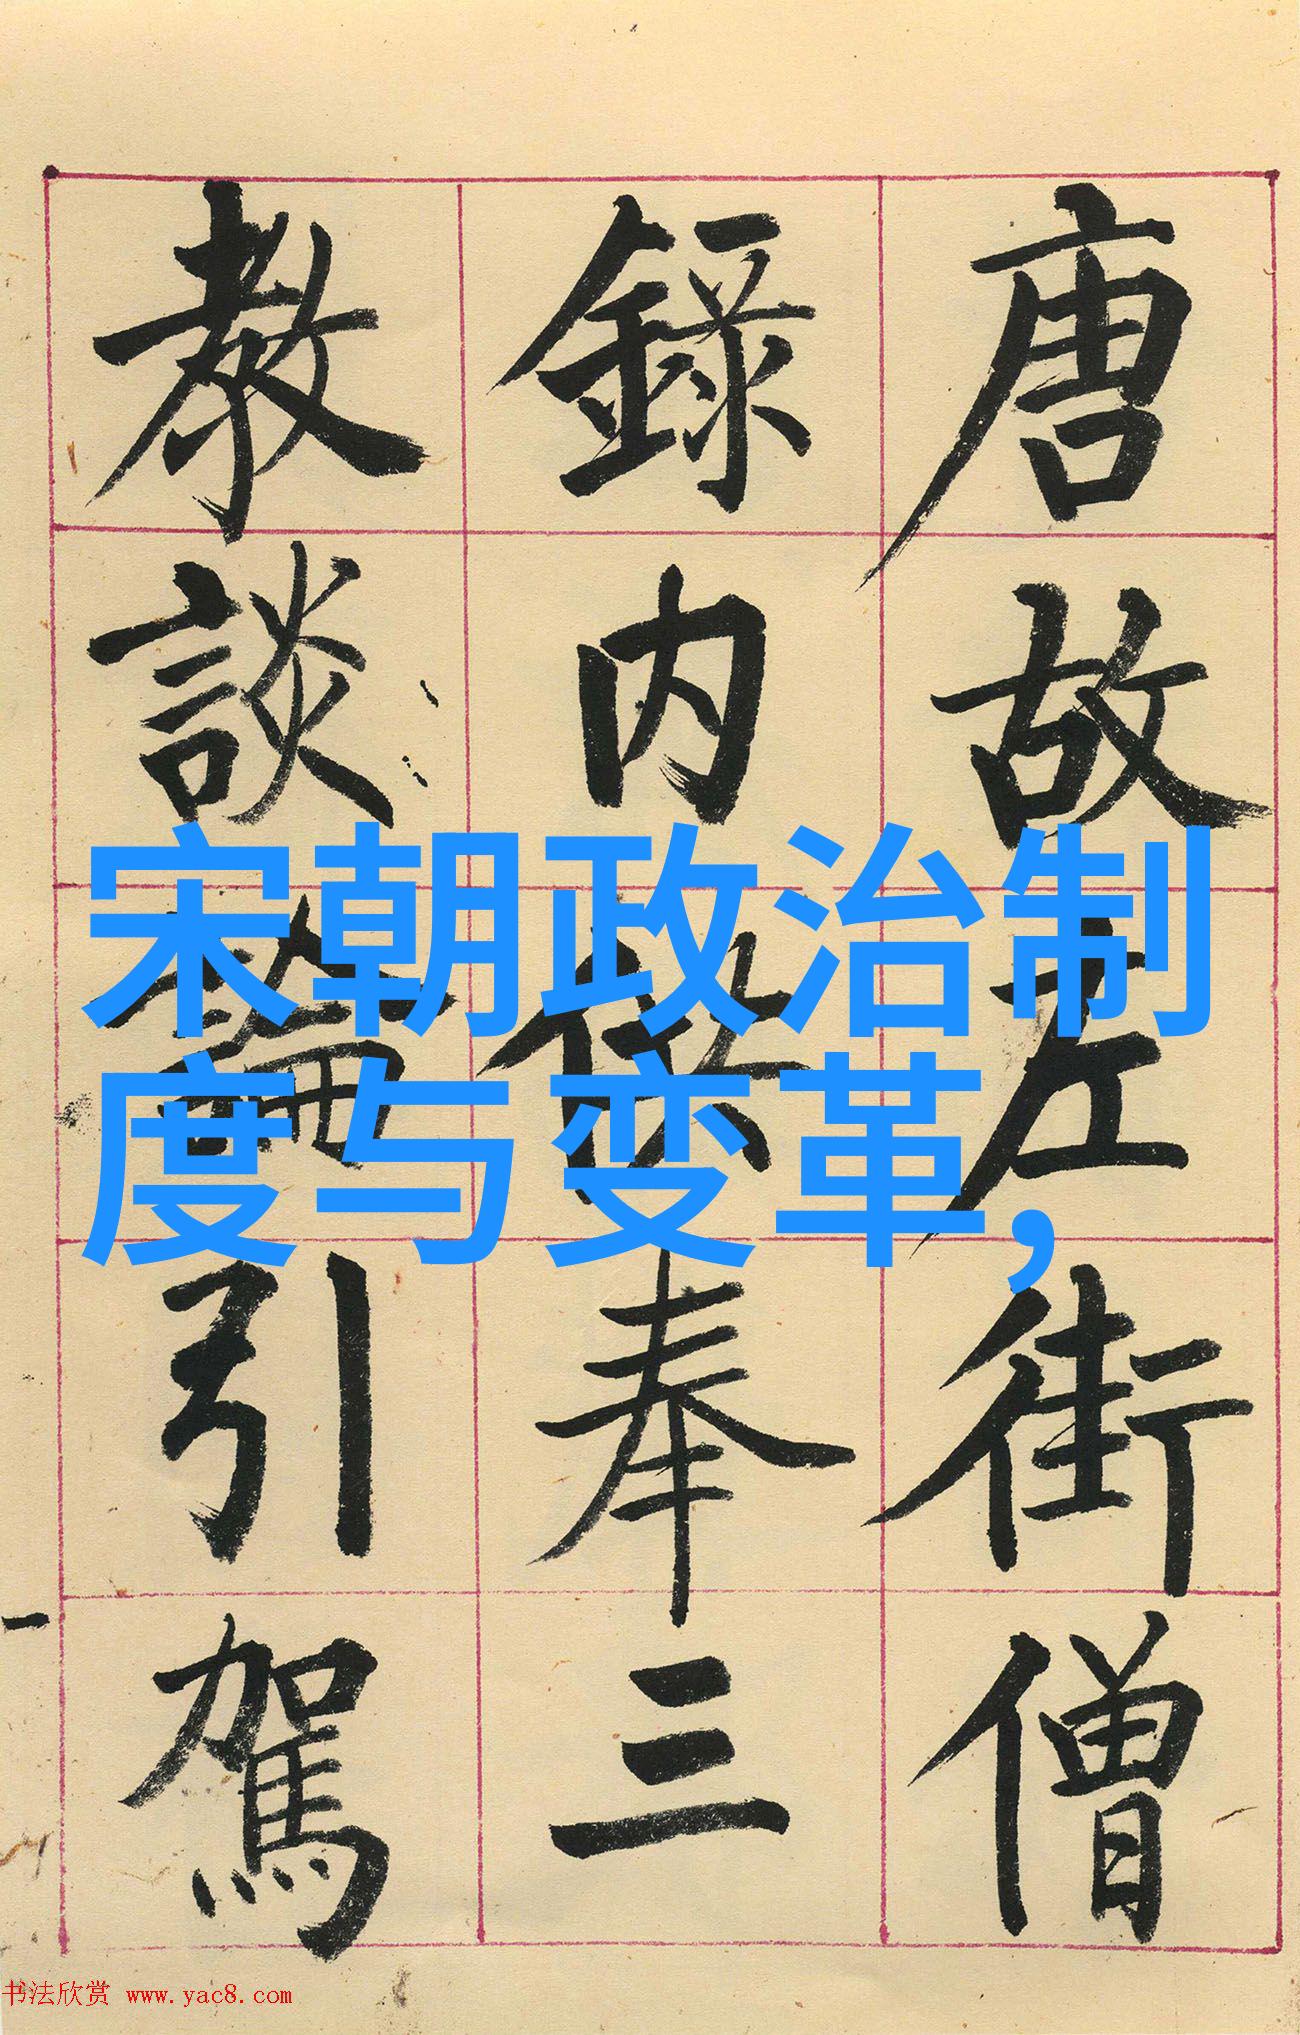 唐故左街僧
錄内供奉三
教談論引駕
宋朝政治制
度与变革,
书法欣赏 www.yac8.com